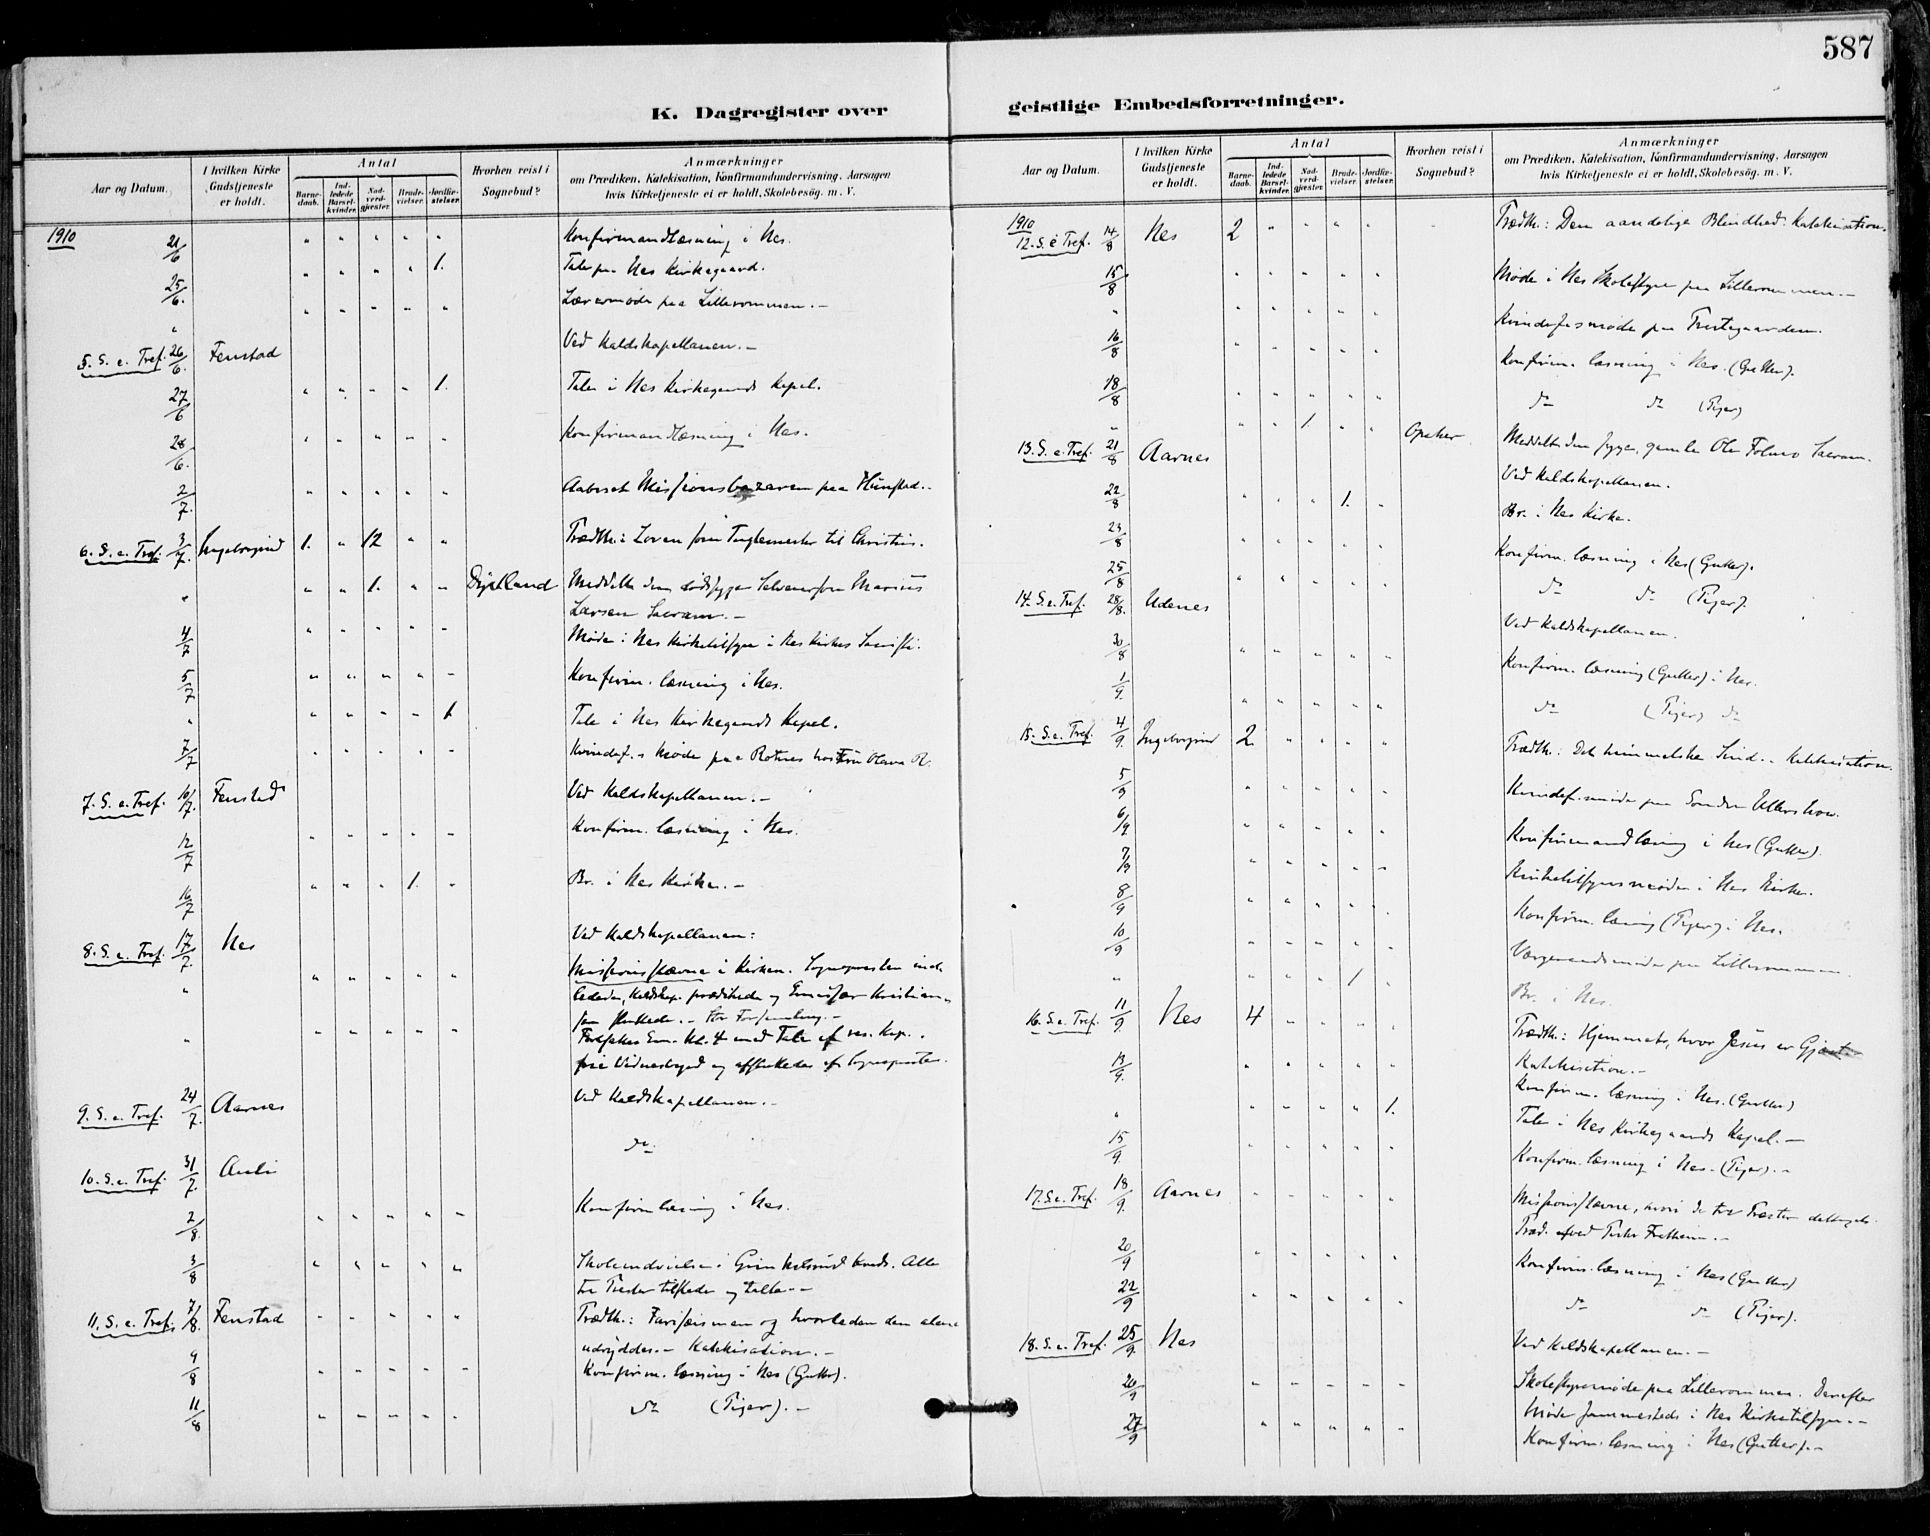 587
K. Dagregister over geistlige Embedsforretninger.
Aar og Datum. I hvilken Kirke Gudstjeneste er holdt. Antal Barnedaab. Indledede Barselkvinder. Nadverdgjester. Brudevielser. Jordfæstelser. Hvorhen reist i Sognebud? Anmærkninger om Prædiken, Katekisation, Konfirmandundervisning, Aarsagen hvis Kirketjeneste ei er holdt, Skolebesøg. m. V.
1910 21/6 " " " " " Konfirmandlæsning i Nes.
" " " " 1. Tale paa Nes Kirkegaard.
25/6. " " " " " Lærermøde paa Lillerommen.-
5. S. e. Tref. 26/6. Fenstad Ved Kaldskapellanen.-
27/6 " " " " 1. Tale i Nes Kirkegaards Kapel.
28/6. " " " " " Konfirmandlæsning i Nes.
2/7. " " " " " Aabnet Missionsbazaren paa Hünstad.-
6. S. e. Tref. 3/7. Ingeborgrud 1. " 12 " " Prædik: Loven som Tugtemester til Christus.
" " " 1. " " Dystland Meddelte den dødssyge Marius
Larsen Sacram.-
4/7 " " " " " Møde i Nes Kirketilsyn i Nes Kirkes Sacristi.
5/7 " " " " " Konfirm. læsning i Nes.
" " " " " 1 Tale i Nes Kirkegaards Kapel.
7/7 " " " " " Kvindef.s Møde paa Rotnes hos Fru Olava R.
7. S. e. Tref. 10/7. Fenstad Ved Kaldskapellanen.-
12/7 " " " " " Konfirm. læsning i Nes.
16/7 " " " 1. " Br. i Nes Kirke.-
8. S. e. Tref. 17/7. Nes Ved Kaldskapellanen:
" " " " " " Missionsstævne i Kirken. Sognepresten ind-
ledede, Kaldskap. prædikede og Emissær Kristian-
sen sluttede.- Stor Forsamling.-
" " " " " " Fortsattes Em. Kl. 4 med Tale af res. Kap.,
frie Vidnesbyrd og afsluttedes af Sognepresten.
9. S. e. Tref. 24/7. Aarnes Ved Kaldskapellanen.-
10. S. e. Tref. 31/7. Auli do
2/8. " " " " " Konfirm læsning i Nes.
3/8 " " " " " Skoleindvielse i Grinkelsrud kreds. Alle
tre Prester tilstede og talte.-
11. S. e. Tref. 7/8. Fenstad " " " " " Prædik.: Farisæismen og hvorledes den alene
udryddes.- Katekisation.-
9/8 " " " " " Konfirm. læsning i Nes (Gutter).
11/8 " " " " " do (Piger).-
Aar og Datum. I hvilken Kirke Gudstjeneste er holdt. Antal Barnedaab. Indledede Barselkvinder. Nadverdgjester. Brudevielser. Jordfæstelser. Hvorhen reist i Sognebud? Anmærkninger om Prædiken, Katekisation, Konfirmandundervisning, Aarsagen hvis Kirketjeneste ei er holdt, Skolebesøg. m. V.
1910
12. S. e Tref. 14/8 Nes 2 " " " " Prædik.: Den aandelige Blindhed. Katekisation.
15/8 " " " " " Møde i Nes Skolestyre paa Lillerommen.-
" " " " " " Kvindef.smøde paa Prestegaarden.
16/8 " " " " " Konfirm. læsning i Nes. (Gutter).
18/8 " " " " " do do (Piger)
" " " 1 " " Opaker. Meddelte den syge, gamle Ole Sacram.
13. S. e. Tref. 21/8 Aarnes Ved Kaldskapellanen.
22/8 " " " 1. " Br. i Nes Kirke.
23/8 " " " " " Konfirm. læsning i Nes (Gutter).
25/8 " " " " " do do (Piger).
14. S. e. Tref. 28/8. Udenes Ved Kaldskapellanen.
30/8 " " " " " Konfirm. læsning (Gutter) i Nes.
1/9. " " " " " do (Piger) do
15. S. e. Tref. 4/9. Ingeborgrud 2 " " " " Prædik.: Det himmelske Sind.- Katekisation.
5/9 " " " " " Kvindef.møde paa Søndre Ullershov.
6/9 " " " " " Konfirmandlæsning i Nes (Gutter).
7/9 " " " " " Kirketilsynsmøde i Nes Kirke.
8/9 " " " " " Konfirm. læsning (Piger) i Nes.
10/9 " " " " " Værgeraadsmøde paa Lillerommen.
" " " " 1 " Br. i Nes.
16. S. e. Tref. 11/9. Nes 4 " " " " Prædik.: Hjemmet, hvor Jesus er Gjæst.
Katekisation.-
13/9. " " " " " Konfirm. læsning i Nes. (Gutter)
" " " " " 1. Tale i Nes Kirkegaards Kapel.-
15/9 " " " " " Konfirm. læsning i Nes. (Piger).-
17. S. e. Tref. 18/9. Aarnes " " " " " Missionsstævne, hvori de tre Prester deltog
Præd. ved Fretheim.-
20/9 " " " " " Konfirm. læsning i Nes (Gutter)
22/9 " " " " " do do (Piger).
18. S. e. Tref. 25/9. Nes Ved Kaldskapellanen.-
26/9 " " " " " Skolestyremøde paa Lillerommen. Derefter
Møde sammesteds i Nes Kirketilsyn.-
27/9 " " " " " Konfirm. læsning i Nes (Gutter).-